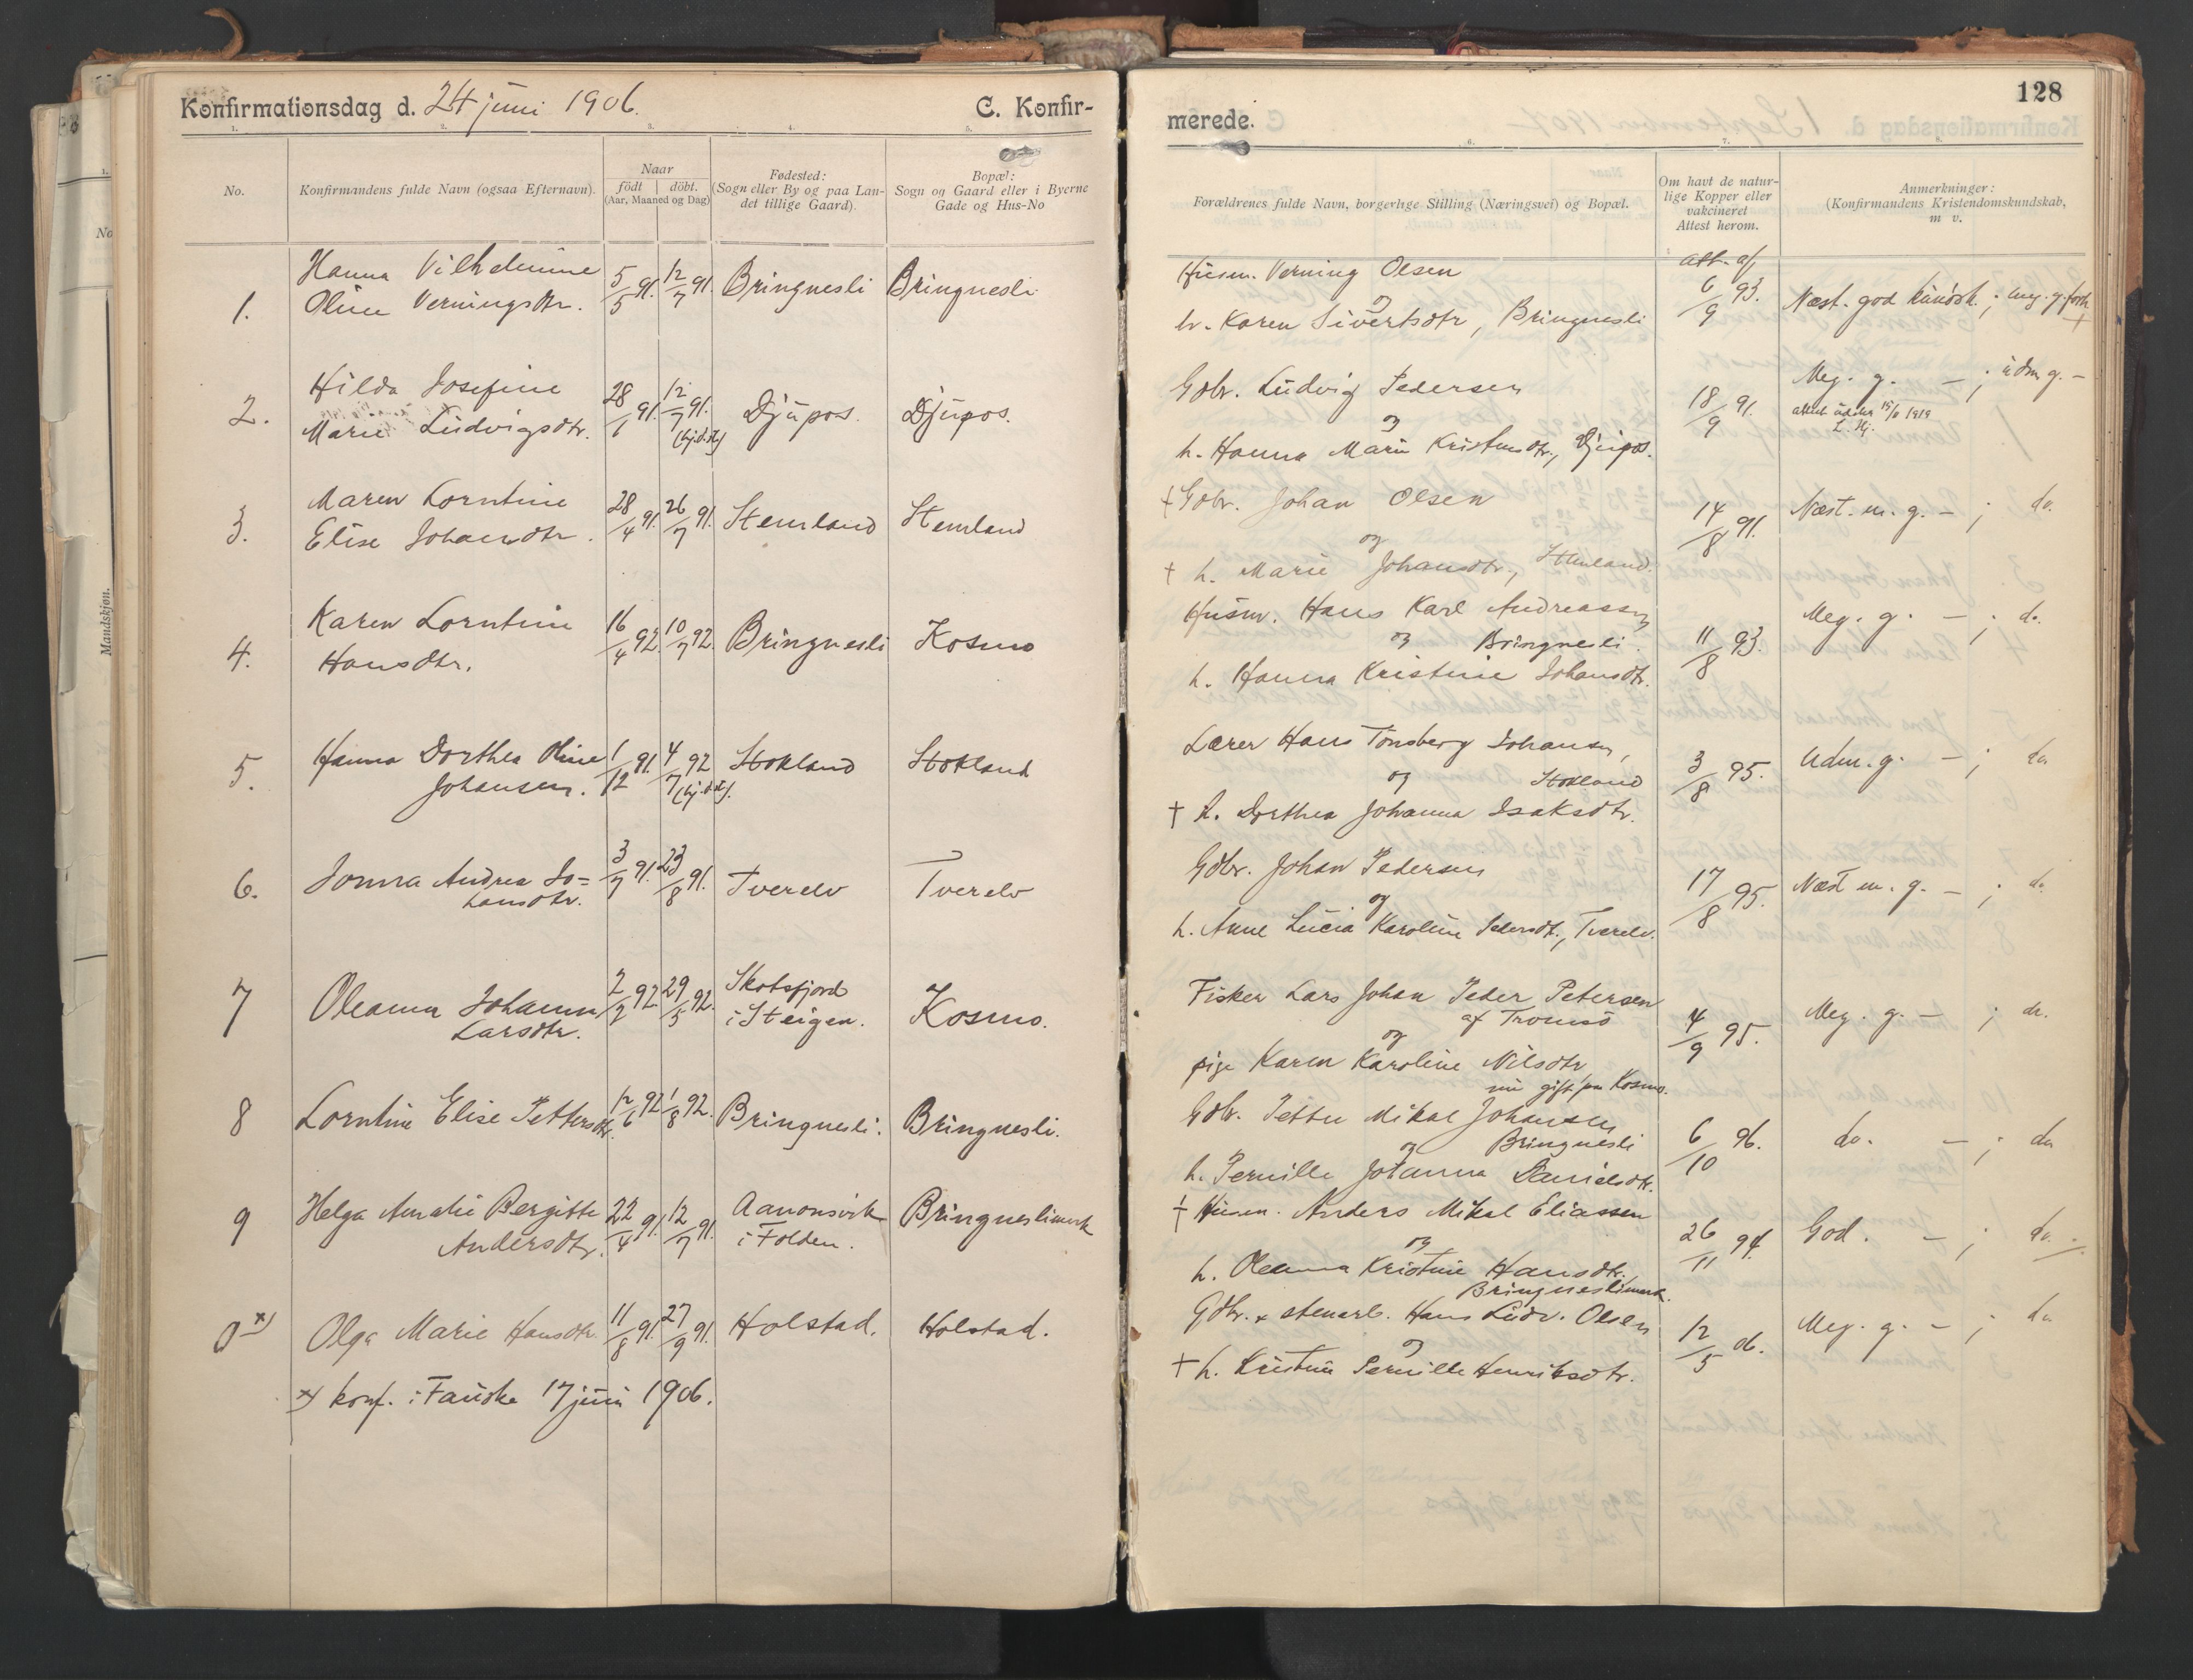 Konfirmationsdag d. 24 juni 1906.
C. Konfir-
1. 2. 3. 4. 5.
No.
Konfirmandens fulde Navn (ogsaa Efternavn).
Naar
födt | döbt.
(Aar, Maaned og Dag)
Fødested:
(Sogn eller By og paa Lan-
det tillige Gaard).
Bopæl:
Sogn og Gaard eller i Byerne
Gade og Hus-No
1.
Hanna Vilhelmine
Oline Verningsdtr.
5/5 91. 12/7 91. Bringnesli Bringnesli
2.
Hilda Josefine
Marie Ludvigsdtr.
28/1 91. 12/7 91. (hj.d. st) Djupos. Djupos.
3.
Maren Lorntine
Elise Johansdtr.
28/4 91. 26/7 91. Stemland Stemland
4.
Karen Lorntine
Hansdtr.
16/4 92. 10/7 92. Bringnesli Kosmo
5.
Hanna Dorthea Oline
Johansen.
1/12 91. 4/7 92 (hj.d.st). Stokland Stokland
6.
Jonna Andrea Jo=
hansdtr.
3/7 91. 23/8 91. Tverelv Tverelv
7
Oleanna Johanna
Larsdtr.
2/2 92 29/5 92. Skotsfjord
i Steigen. Kosmo.
8 Lorntine Elise Pettersdtr. 12/6 92 1/8 92. Bringnesli. Bringnesli.
9
Helga Amalie Bergitte
Andersdtr.
22/4 91. 12/7 91. Aanonsvik
i Folden. Bringneslimark
0 x) Olga Marie Hansdtr. 11/8 91. 27/9 91. Holstad. Holstad.
x) konf. i Fauske 17 juni 1906.
128
merede.
6. 7. 8.
Forældrenes fulde Navn, borgerlige Stilling (Næringsvei) og Bopæl.
Om havt de natur-
lige Kopper eller
vakcineret
Attest herom.
Anmerkninger:
(Konfirmandens Kristendomskundskab,
m v.
Husm. Verning Olsen
og
h. Karen Sivertsdtr, Bringnesli
att. af
6/9 93.
Næst. god kundsk. ; meg. g. forh
Gdbr. Ludvig Pedersen
og
h. Hanna Marie Kristensdtr., Djupos.
18/9 91.
Meg. g. – ; udm g. –
attest udst. 1919
† Gdbr. Johan Olsen
og
† h. Marie Johansdtr., Stemland.
14/8 91.
Næst. m. g. – ; do.
Husm. Hans Karl Andreassen
og Bringnesli.
h. Hanna Kristine Johansdtr.
11/8 93.
Meg. g. – ; do.
Lærer Hans Tönsberg Johansen,
og Stokland
† h. Dorthea Johanna Isaksdtr.
3/8 95.
Udm. g. – ; do
Gdbr. Johan Pedersen
og
h. Anne Lucia Karoline Pedersdt., Tverelv.
17/8 95.
Næst m. g. – ; do.
Fisker Lars Johan Peder Petersen
af Tromsö
og
pige Karen Karoline Nilsdtr
nu gift paa Kosmo.
4/9 95.
Meg. g. – ; do.
Gdbr. Petter Mikal Johansen
og Bringnesli
h. Pernille Johanna Danielsdtr.
6/10 96.
do. – ; do
† Husm. Anders Mikal Eliassen
og
h. Oleanna Kristine Hansdtr.
Bringneslimark.
26/11 94.
God. – ; do.
Gdbr. & stenarb. Hans Ludv. Olsen
og
† h. Kristine Pernille Henriksdtr.
12/5 06.
Meg. g. – ; do